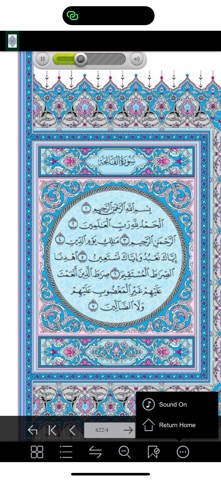 سُورَةُ الْفَاتِحَةِ
بِسْمِ اللَّهِ الرَّحْمَٰنِ الرَّحِيمِ ١
الْحَمْدُ لِلَّهِ رَبِّ الْعَالَمِينَ ٢
الرَّحْمَٰنِ الرَّحِيمِ ٣ مَالِكِ يَوْمِ الدِّينِ ٤
إِيَّاكَ نَعْبُدُ وَإِيَّاكَ نَسْتَعِينُ ٥ اهْدِنَا
الصِّرَاطَ الْمُسْتَقِيمَ ٦ صِرَاطَ الَّذِينَ أَنْعَمْتَ
عَلَيْهِمْ غَيْرِ الْمَغْضُوبِ عَلَيْهِمْ
وَلَا الضَّالِّينَ ٧
Sound On
Return Home
622/4